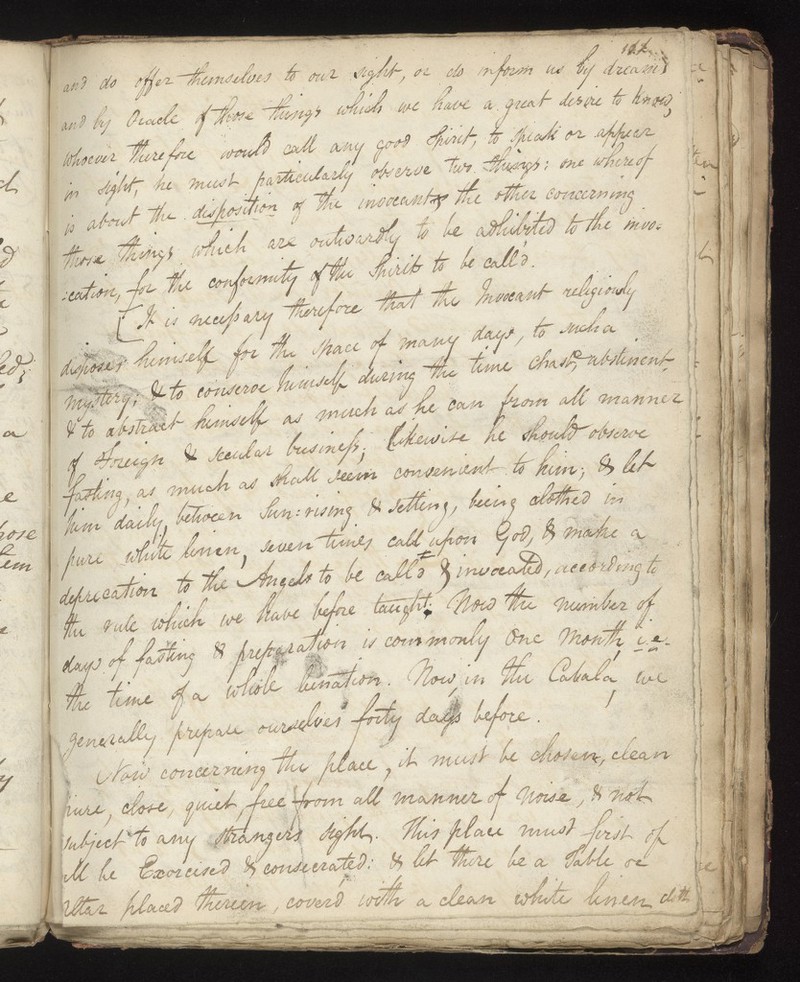 and do offer themselves to our sight, or do inform us by dreams
and by Oracle of those things which we have a great desire to know;
Whoever therefore would call any good Spirit, to speak or appear
in sight, he must particularly observe two things: one whereof
is about the disposition of the invocant & the other concerning
those things which are outwardly to be adhibited to the invo-
:cation, for the conformity of the Spirits to be call'd.
[It is necessary therefore that the Invocant religiously
disposes himself for the space of many days, to such a
mystery; & to conserve himself during the time chast, abstinent,
& to abstract himself as much as he can from all manner
of Foreign & secular business; Likewise he should observe
fasting, as much as shall seem convenient to him; & let
him daily, between Sun:rising & setting, being clothed in
pure white linen, seven times call upon God, & make a
deprecation to the Angels to be call'd & invocated, according to
the rule which we have before taught: Now the number of
days of fasting & preparation is commonly One Month, i.e.
the time of a whole lunation. Now, in the Cabala, we
generally prepare ourselves forty days before.
Now concerning the place, it must be chosen, clean
pure, close, quiet, free from all manner of Noise, & not
subject to any strangers sight. This place must first of
all be Exorcised & consecrated: & let there be a Table or
altar placed therein, cover'd with a clean white linen cloth